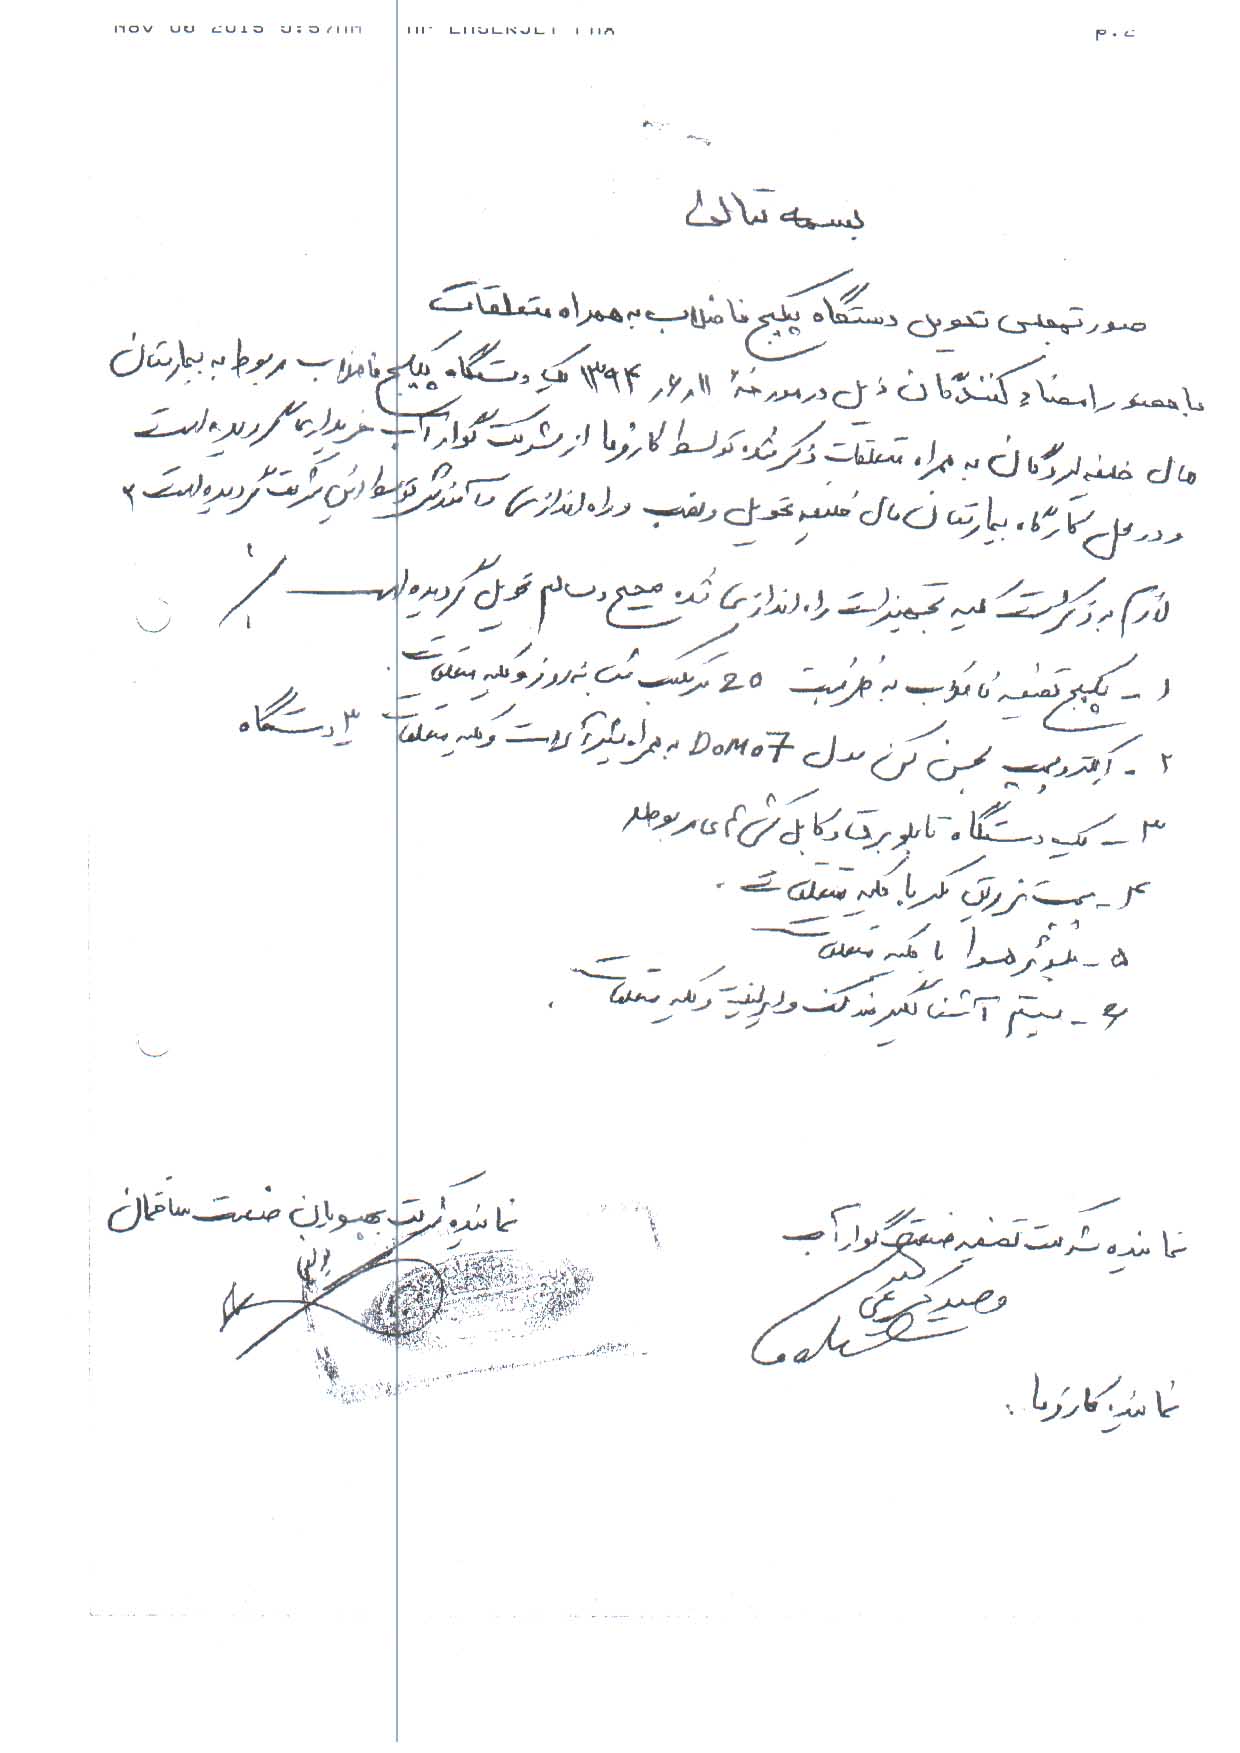 بسمه تعالی
صورتمجلس تحویل دستگاه پکیج فاضلاب به همراه متعلقات
با حضور امضاء کنندگان ذیل در مورخهٔ ۱۱ر۶ر۱۳۹۴ یک دستگاه پکیج فاضلاب مربوط به بیمارستان
مال خلیفه لردگان به همراه متعلقات ذکر شده توسط کارفرما از شرکت گوار آب خریداری گردیده است
و در محل کارگاه بیمارستان مال خلیفه تحویل و نصب و راه اندازی و آموزش توسط این شرکت گردیده است
لازم به ذکر است کلیه تجهیزات راه اندازی شده صحیح و سالم تحویل گردیده است
۱- پکیج تصفیه فاضلاب به ظرفیت 20 متر مکعب شبانه روز و کلیه متعلقات.
۲- الکتروپمپ لجن کش مدل DOMO7 به همراه شیرآلات و کلیه متعلقات ۳ دستگاه
۳- یک دستگاه تابلو برق و کابل کشی های مربوطه
۴- پمپ تزریق کلر با کلیه متعلقات.
۵- بلوئر هوا با کلیه متعلقات
۶- سیستم آشغالگیر و کلیه متعلقات.
نماینده شرکت تصفیه صنعت گوار آب
نماینده شرکت بهپویان صنعت ساختمان
نماینده کارفرما: